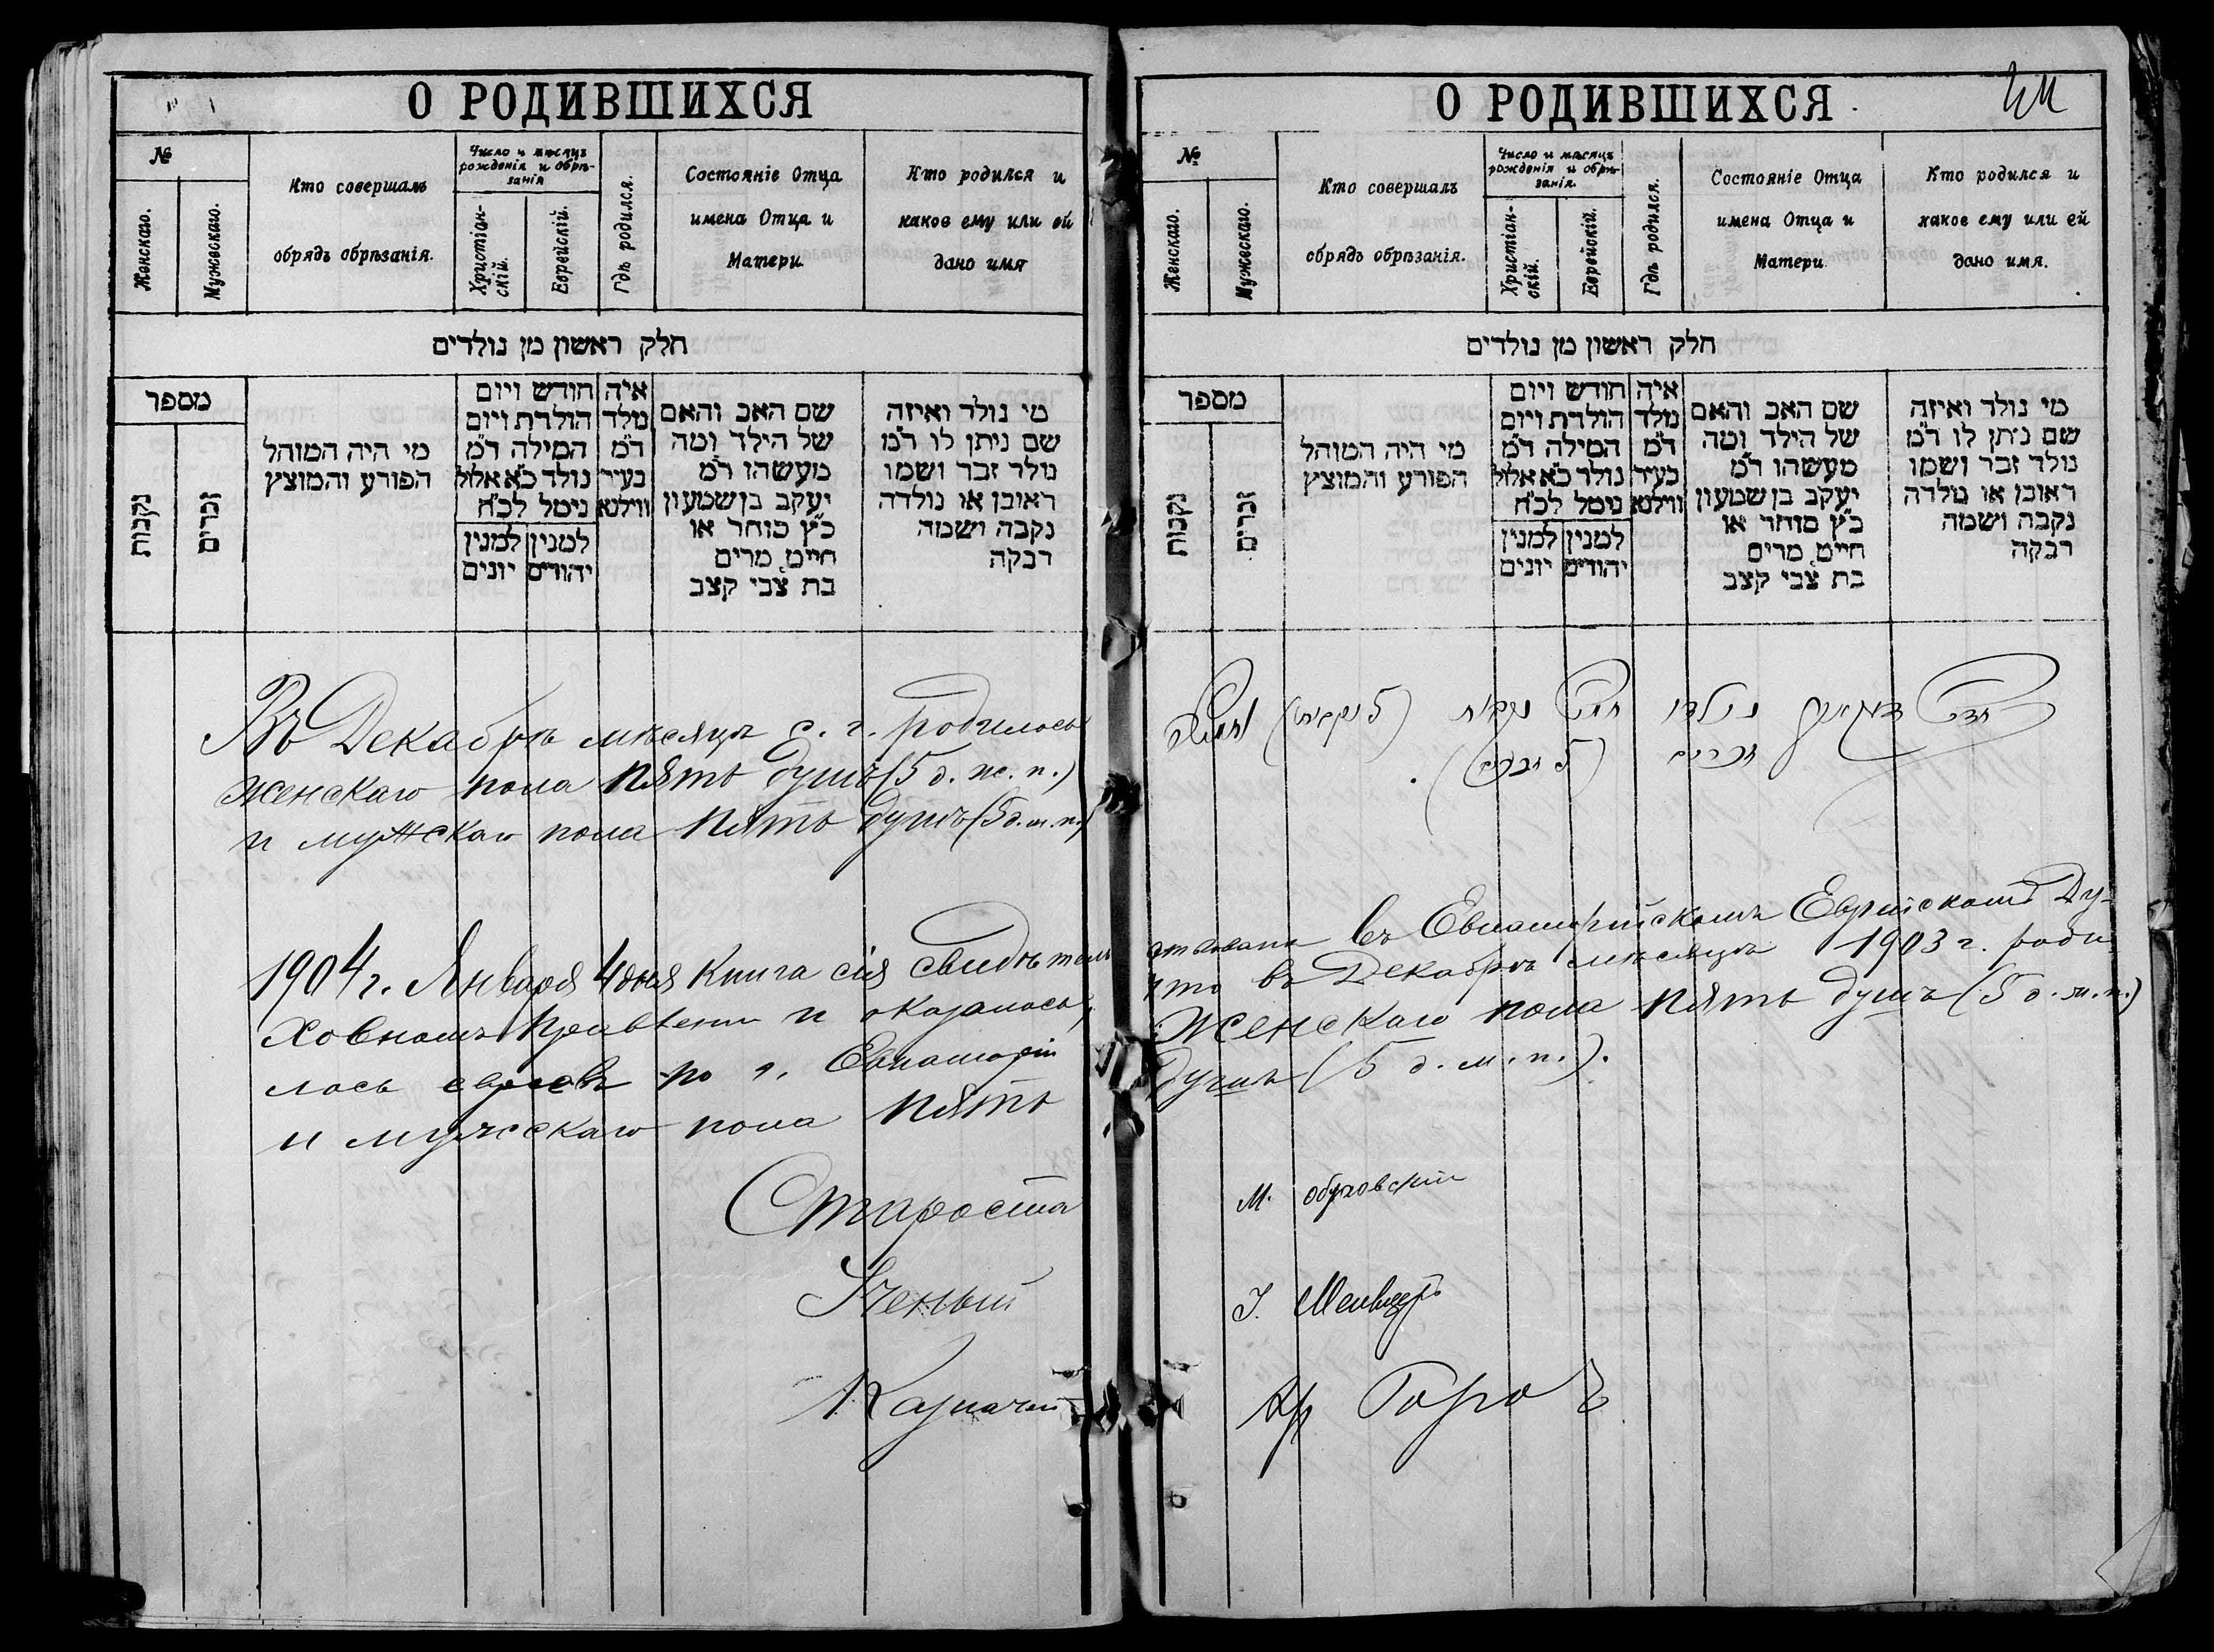 О РОДИВШИХСЯ
№
Женскаго.
Мужескаго.
Кто совершалъ
обрядъ обрѣзанія.
Число и мѣсяцъ
рожденія и обрѣ-
занія
Христіан-
скій.
Еврейскій.
Гдѣ родился.
Состояніе Отца
имена Отца и
Матери
Кто родился и
какое ему или ей
дано имя
חלק ראשון מן נולדים
מספר
נקבות
זכרים
מי היה המוהל
הפורע והמוצץ
חודש ויום
הולדת ויום
המילה ד״מ
נולד כ״א אלול
נימל לכ״ח
למנין למנין
יהודים יונים
איה
נולד
ד״מ
בעיר
ווילנא
שם האב והאם
של הילד ומה
מעשהו ד״מ
יעקב בן שמעון
כ״ץ סוחר או
חייט מרים
בת צבי קצב
מי נולד ואיזה
שם ניתן לו ד״מ
נולד זכר ושמו
ראובן או נולדה
נקבה ושמה
רבקה
Въ Декабрѣ мѣсяцѣ с. г. родилось
женскаго пола пять душъ (5 д. ж. п.)
и мужскаго пола пять душъ (5 д. м. п.)
1904 г. Января 4 дня Книга сія свидѣтель
ховномъ Правленіи и оказалось,
лось евреевъ по г. Евпаторіи
и мужескаго пола пять
Староста
Ученый
Казначей
О РОДИВШИХСЯ
№
Женскаго.
Мужескаго.
Кто совершалъ
обрядъ обрѣзанія.
Число и мѣсяцъ
рожденія и обрѣ-
занія.
Христіан-
скій.
Еврейскій.
Гдѣ родился.
Состояніе Отца
имена Отца и
Матери
Кто родился и
какое ему или ей
дано имя.
חלק ראשון מן נולדים
מספר
נקבות
זכרים
מי היה המוהל
הפורע והמוצץ
חודש ויום
הולדת ויום
המילה ד״מ
נולד כ״א אלול
נימל לכ״ח
למנין למנין
יהודים יונים
איה
נולד
ד״מ
בעיר
ווילנא
שם האב והאם
של הילד ומה
מעשהו ד״מ
יעקב בן שמעון
כ״ץ סוחר או
חייט מרים
בת צבי קצב
מי נולד ואיזה
שם ניתן לו ד״מ
נולד זכר ושמו
ראובן או נולדה
נקבה ושמה
רבקה
נולדו נקבות (5 נקבות)
זכרים (5 זכרים)
ствована въ Евпаторійскомъ Еврейскомъ Ду-
что въ Декабрѣ мѣсяцѣ 1903 г. роди
Женскаго пола пять душъ (5 д. ж. п.)
душъ (5 д. м. п.).
М.